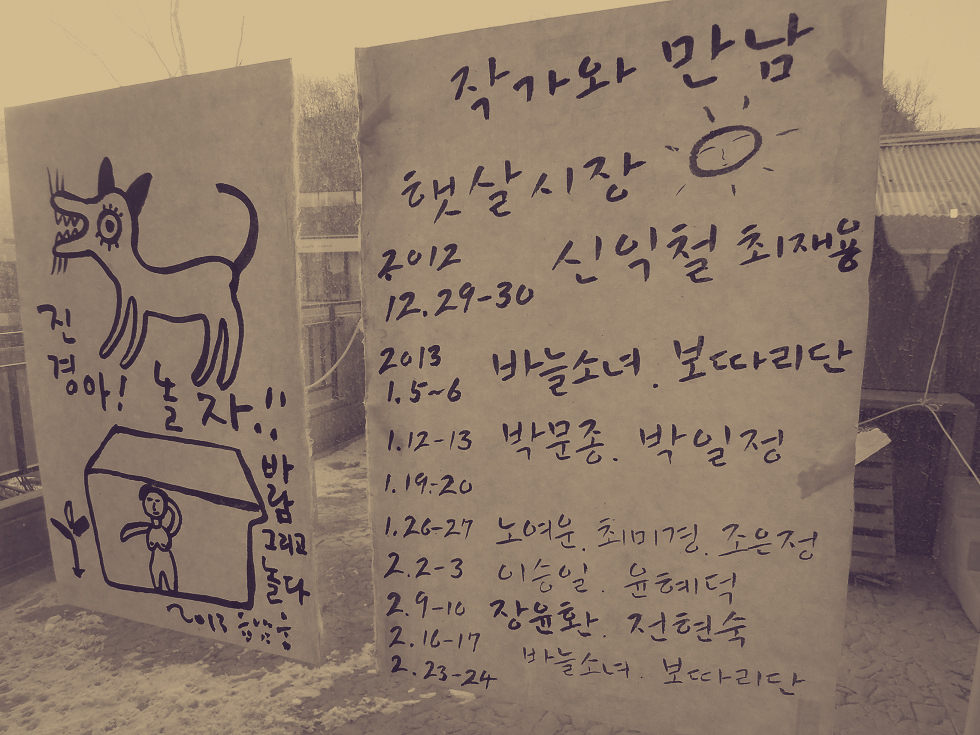 진
경아! 놀자!!
바람
그리고
놀다
2013
작가와 만남
햇살시장
2012
12.29-30 신익철 최재용
2013
1.5~6 바늘소녀. 보따리단
1.12-13 박문종. 박일정
1.19-20
1.26-27 노여운. 최미경. 조은정
2.2-3 이승일. 윤혜덕
2.9-10 장윤환. 전현숙
2.16-17
2.23-24 바늘소녀. 보따리단